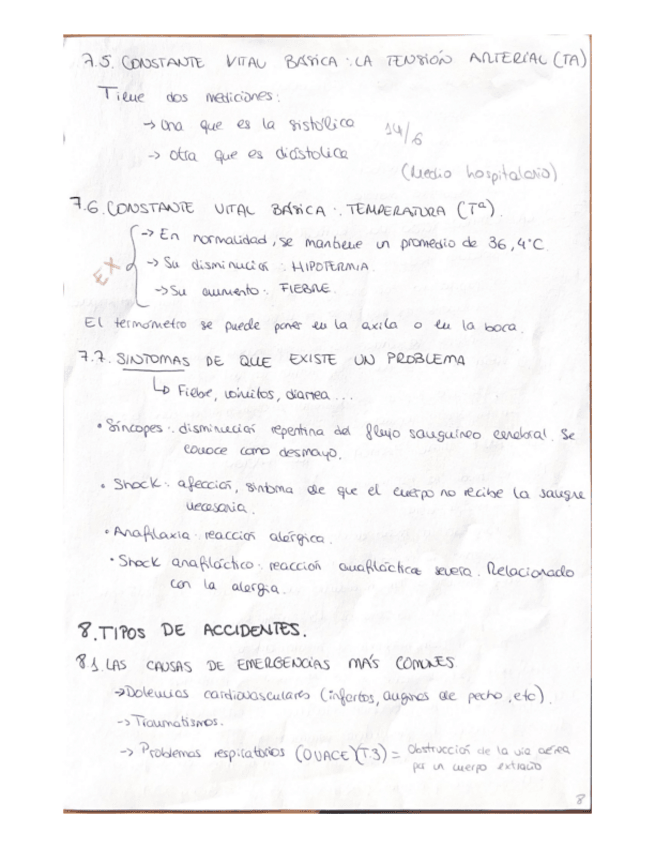 7.5. CONSTANTE VITAL BÁSICA: LA TENSIÓN ARTERIAL (TA)
Tiene dos mediciones:
→ Una que es la sistólica
14/6
→ otra que es diástolica
(Medio hospitalario)
7.6. CONSTANTE VITAL BÁSICA: TEMPERATURA (Tª).
→ En normalidad, se mantiene un promedio de 36,4°C.
EX
→ Su disminución: HIPOTERMIA.
→ Su aumento: FIEBRE.
El termómetro se puede poner en la axila o en la boca.
7.7. SINTOMAS DE QUE EXISTE UN PROBLEMA
↳ Fiebe, vómitos, diarrea...
• Síncopes: disminución repentina del flujo sanguíneo cerebral. Se
conoce como desmayo.
• Shock: afección, síntoma de que el cuerpo no recibe la sangre
necesaria.
• Anafilaxia: reacción alérgica.
• Shock anafiláctico: reacción anafiláctica severa. Relacionado
con la alergia.
8. TIPOS DE ACCIDENTES.
8.1 LAS CAUSAS DE EMERGENCIAS MÁS COMUNES
→ Dolencias cardiovasculares (infartos, anginas de pecho, etc).
→ Traumatismos.
→ Problemas respiratorios (OVACE)(T.3) = Obstrucción de la vía aérea
por un cuerpo extraño
8